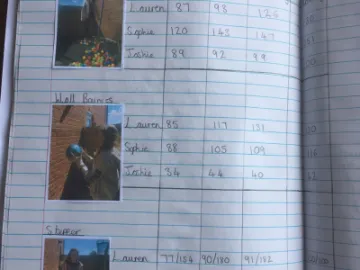 Lauren 87 93 126
Sophie 120 145 147
Jackie 89 92 99
Wall Bounces
Lauren 85 117 131
Sophie 88 105 109
Jackie 34 44 40
Stepper
Lauren 77/154 90/180 91/182